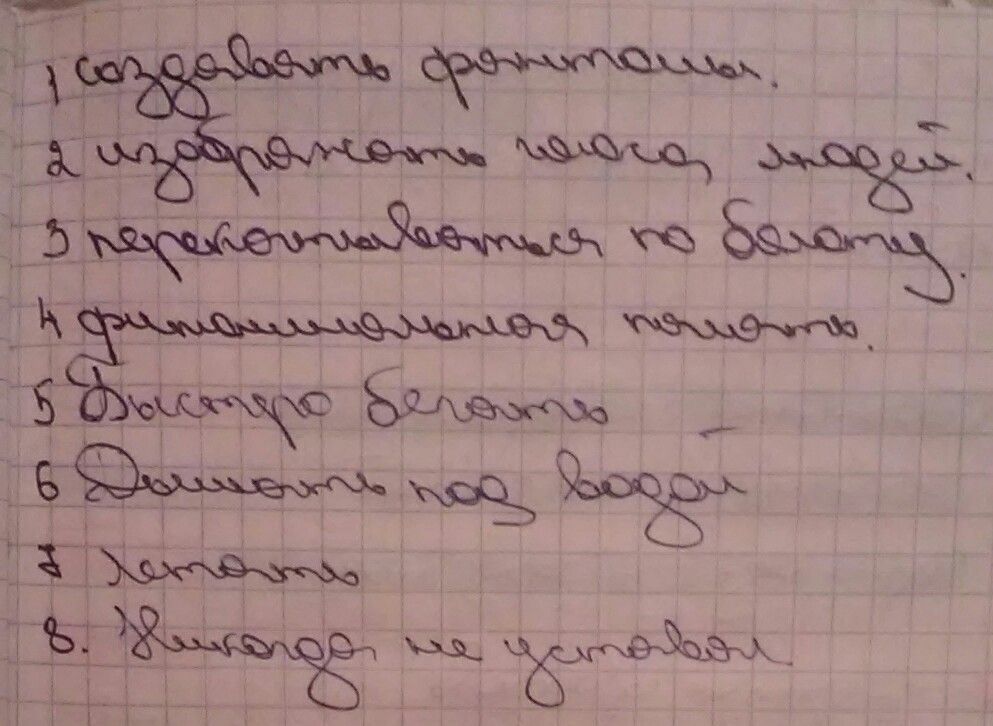 1 создавать фантомы.
2 изображать голоса людей.
3 по
4 память.
5 Быстро бегать
6 Дышать под водой
7 летать
8. Никогда не уставал